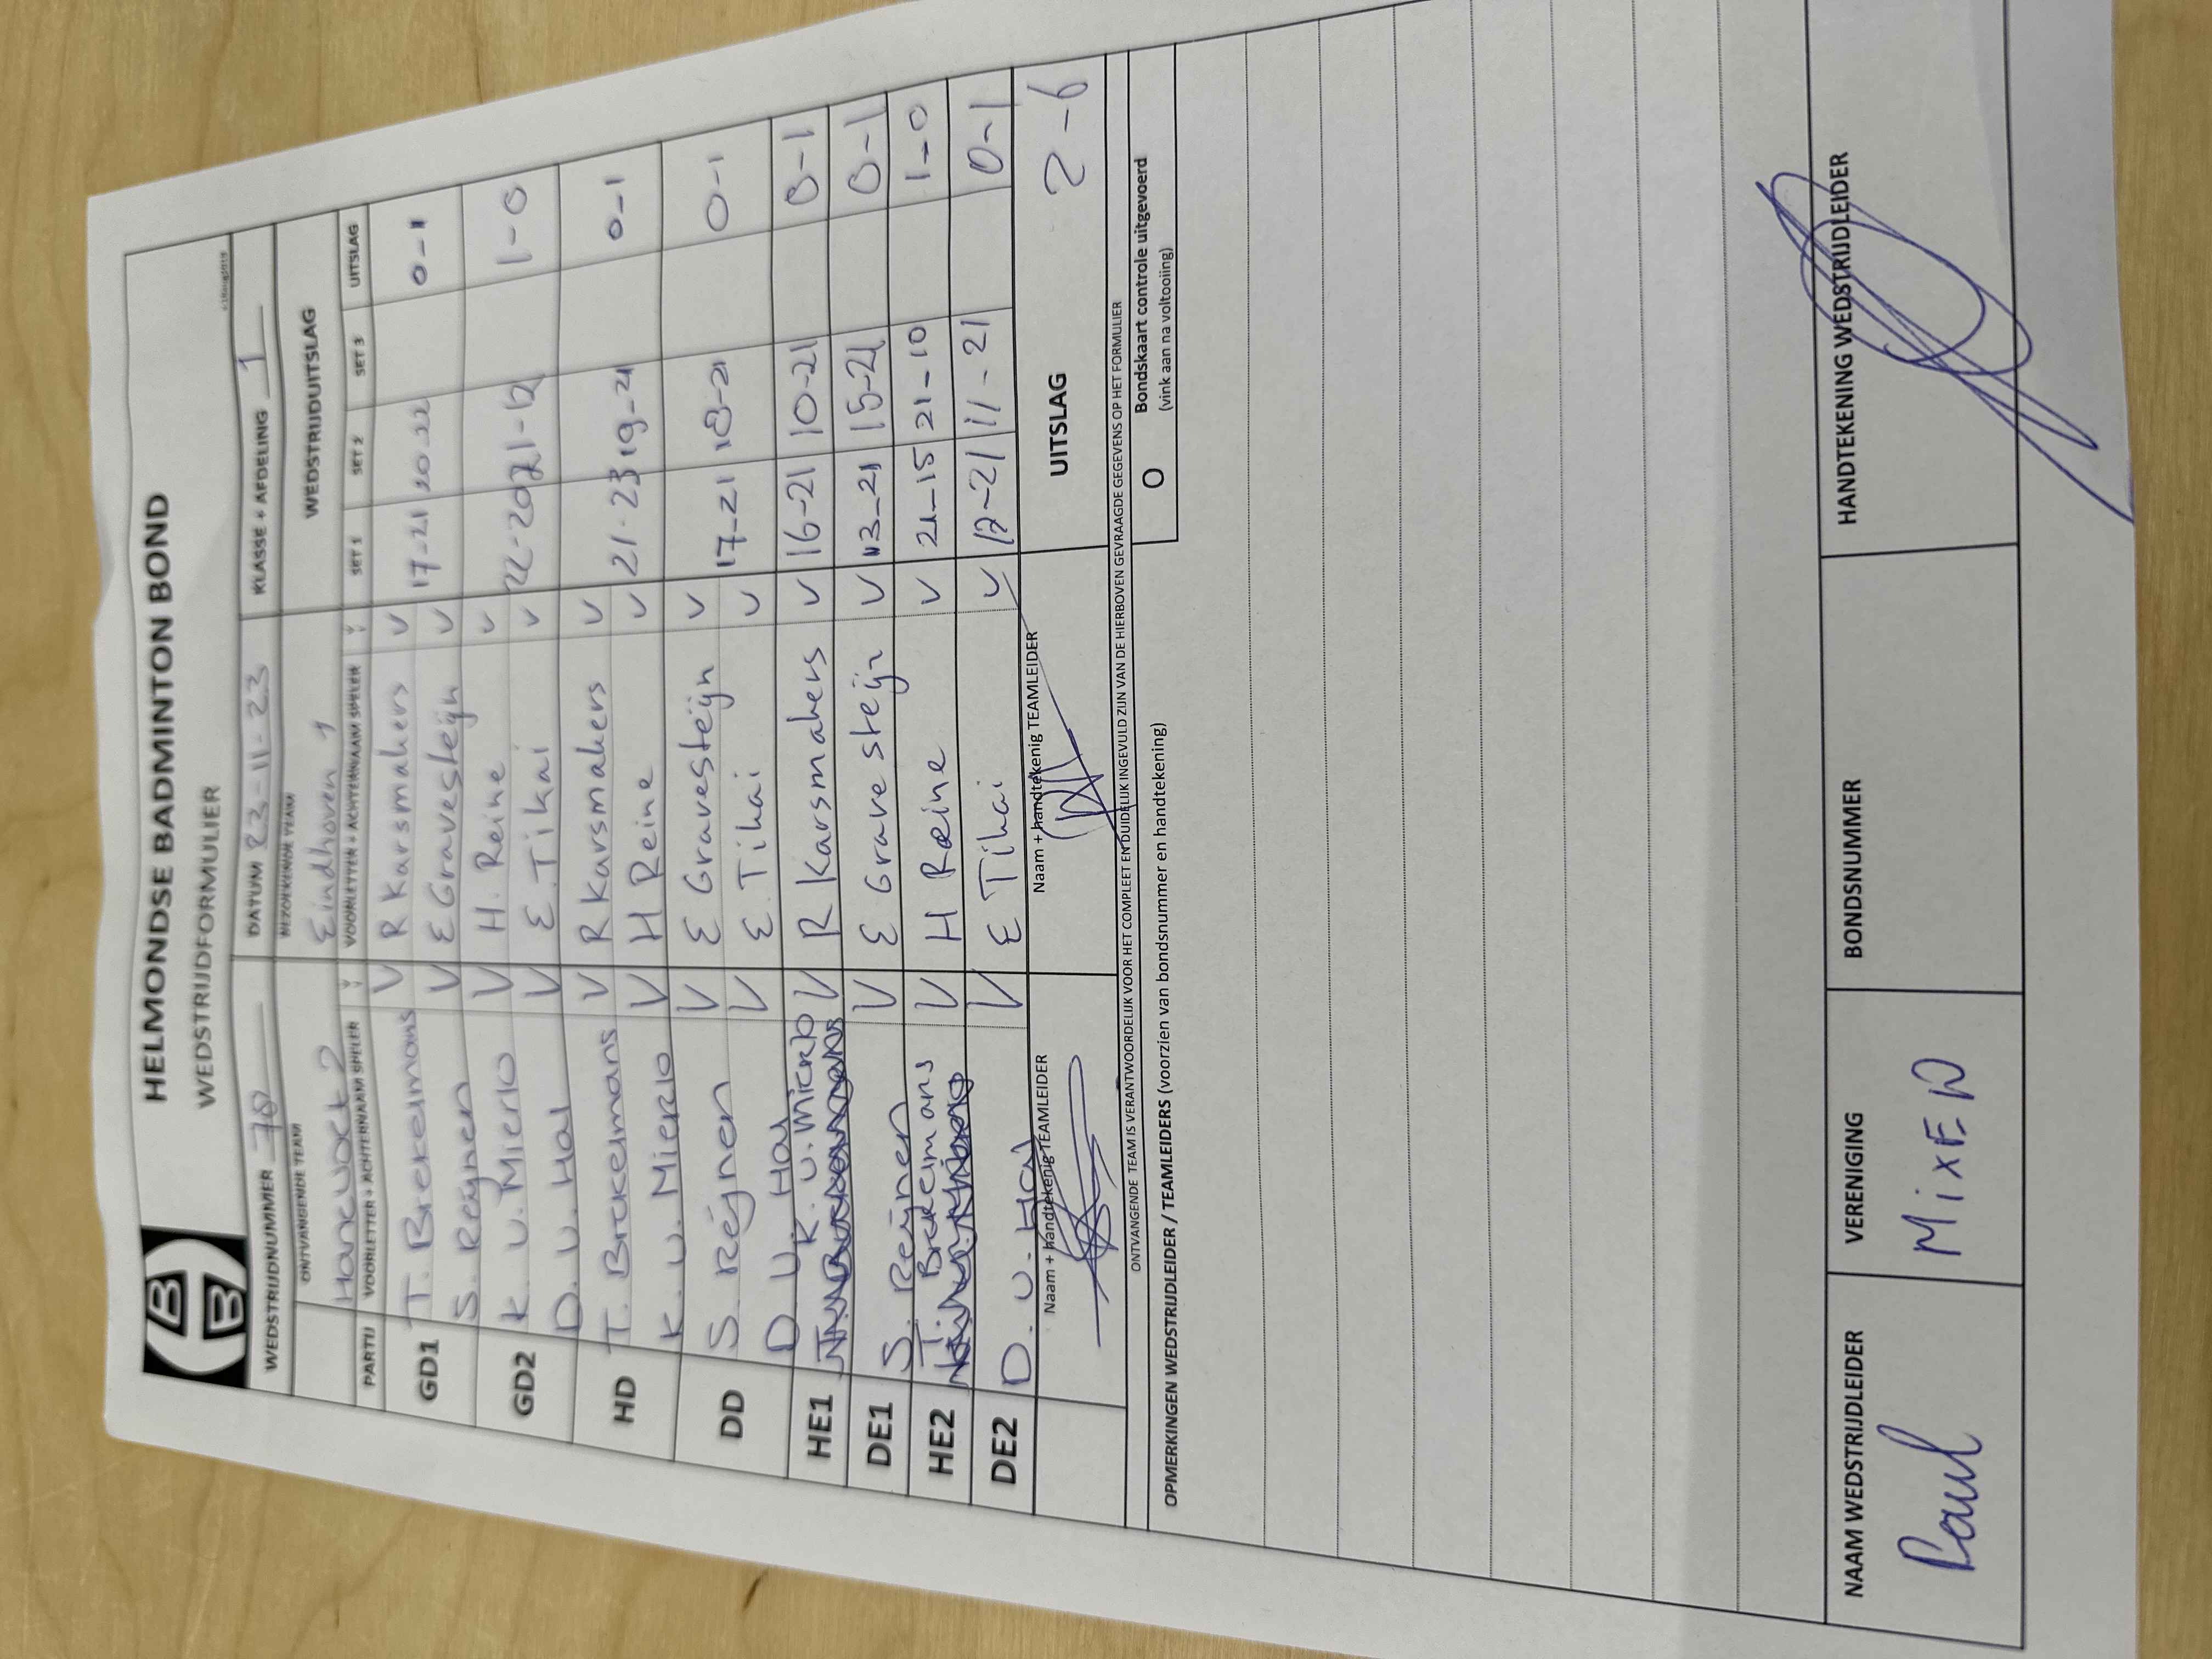 HELMONDSE BADMINTON BOND
WEDSTRIJDFORMULIER
WEDSTRIJDNUMMER 70 DATUM 23-11-23 KLASSE + AFDELING 1
ONTVANGENDE TEAM BEZOEKENDE TEAM WEDSTRIJDUITSLAG
Hanevoet 2 Eindhoven 1
PARTIJ VOORLETTER + ACHTERNAAM SPELER V VOORLETTER + ACHTERNAAM SPELER V SET 1 SET 2 SET 3 UITSLAG
GD1 T. Brekelmans V R Karsmakers V 17-21 20-22 0-1
S. Reijnen V E Gravesteijn V
GD2 K. v. Mierlo V H. Reine V 22-20 21-12 1-0
D. v. Hal V E. Tihai V
HD T. Brekelmans V R Karsmakers V 21-23 19-21 0-1
K. v. Mierlo V H Reine V
DD S. Reijnen V E Gravesteijn V 17-21 18-21 0-1
D. v. Hal V E. Tihai V
HE1 K. v. Mierlo V R Karsmakers V 16-21 10-21 0-1
DE1 S. Reijnen V E Gravesteijn V 13-21 15-21 0-1
HE2 T. Brekelmans V H Reine V 21-15 21-10 1-0
DE2 D. v. Hal V E Tihai V 12-21 11-21 0-1
Naam + handtekenig TEAMLEIDER Naam + handtekenig TEAMLEIDER UITSLAG 2-6
ONTVANGENDE TEAM IS VERANTWOORDELIJK VOOR HET COMPLEET EN DUIDELIJK INGEVULD ZIJN VAN DE HIERBOVEN GEVRAAGDE GEGEVENS OP HET FORMULIER
OPMERKINGEN WEDSTRIJDLEIDER / TEAMLEIDERS (voorzien van bondsnummer en handtekening)
O Bondskaart controle uitgevoerd
(vink aan na voltooiing)
NAAM WEDSTRIJDLEIDER VERENIGING BONDSNUMMER HANDTEKENING WEDSTRIJDLEIDER
Paul MixED